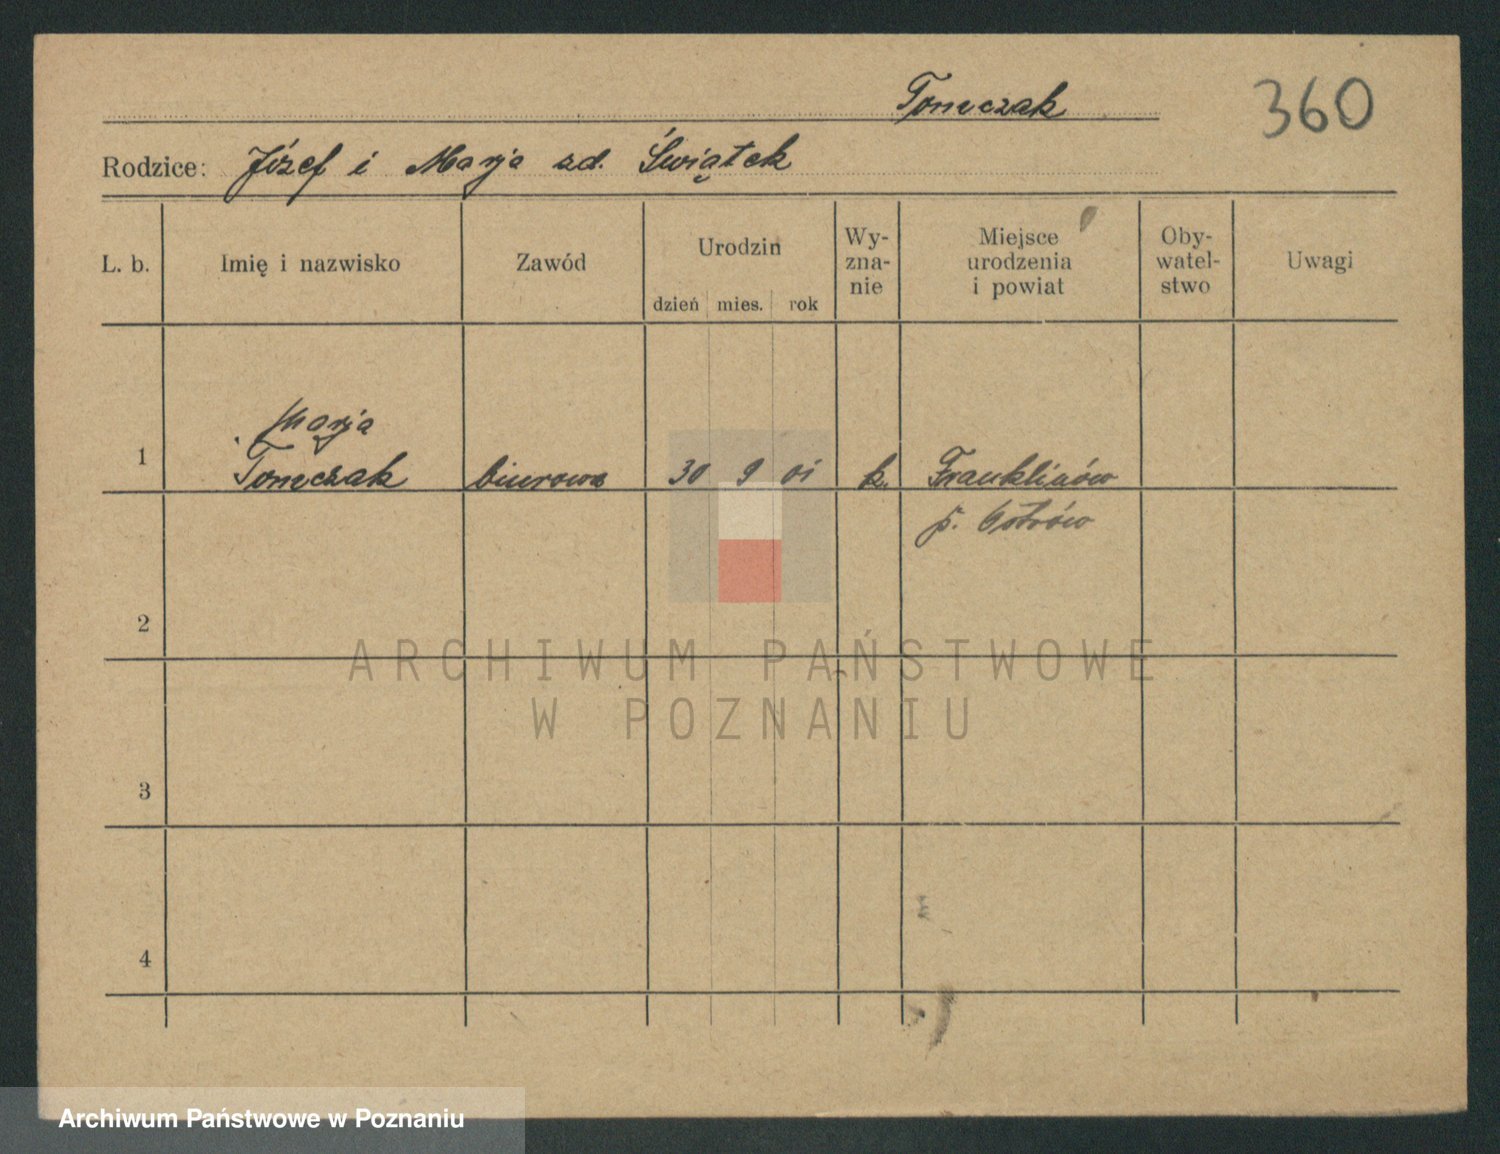 Tomczak
360
Rodzice: Józef i Marja zd. Świątek
L. b.
Imię i nazwisko
Zawód
Urodzin
dzień mies. rok
Wy-
zna-
nie
Miejsce
urodzenia
i powiat
Oby-
watel-
stwo
Uwagi
Marja
1 Tomczak biurowa 30 9 01 k. Franklinów
p. Ostrów
2
3
4
ARCHIWUM PAŃSTWOWE
W POZNANIU
Archiwum Państwowe w Poznaniu